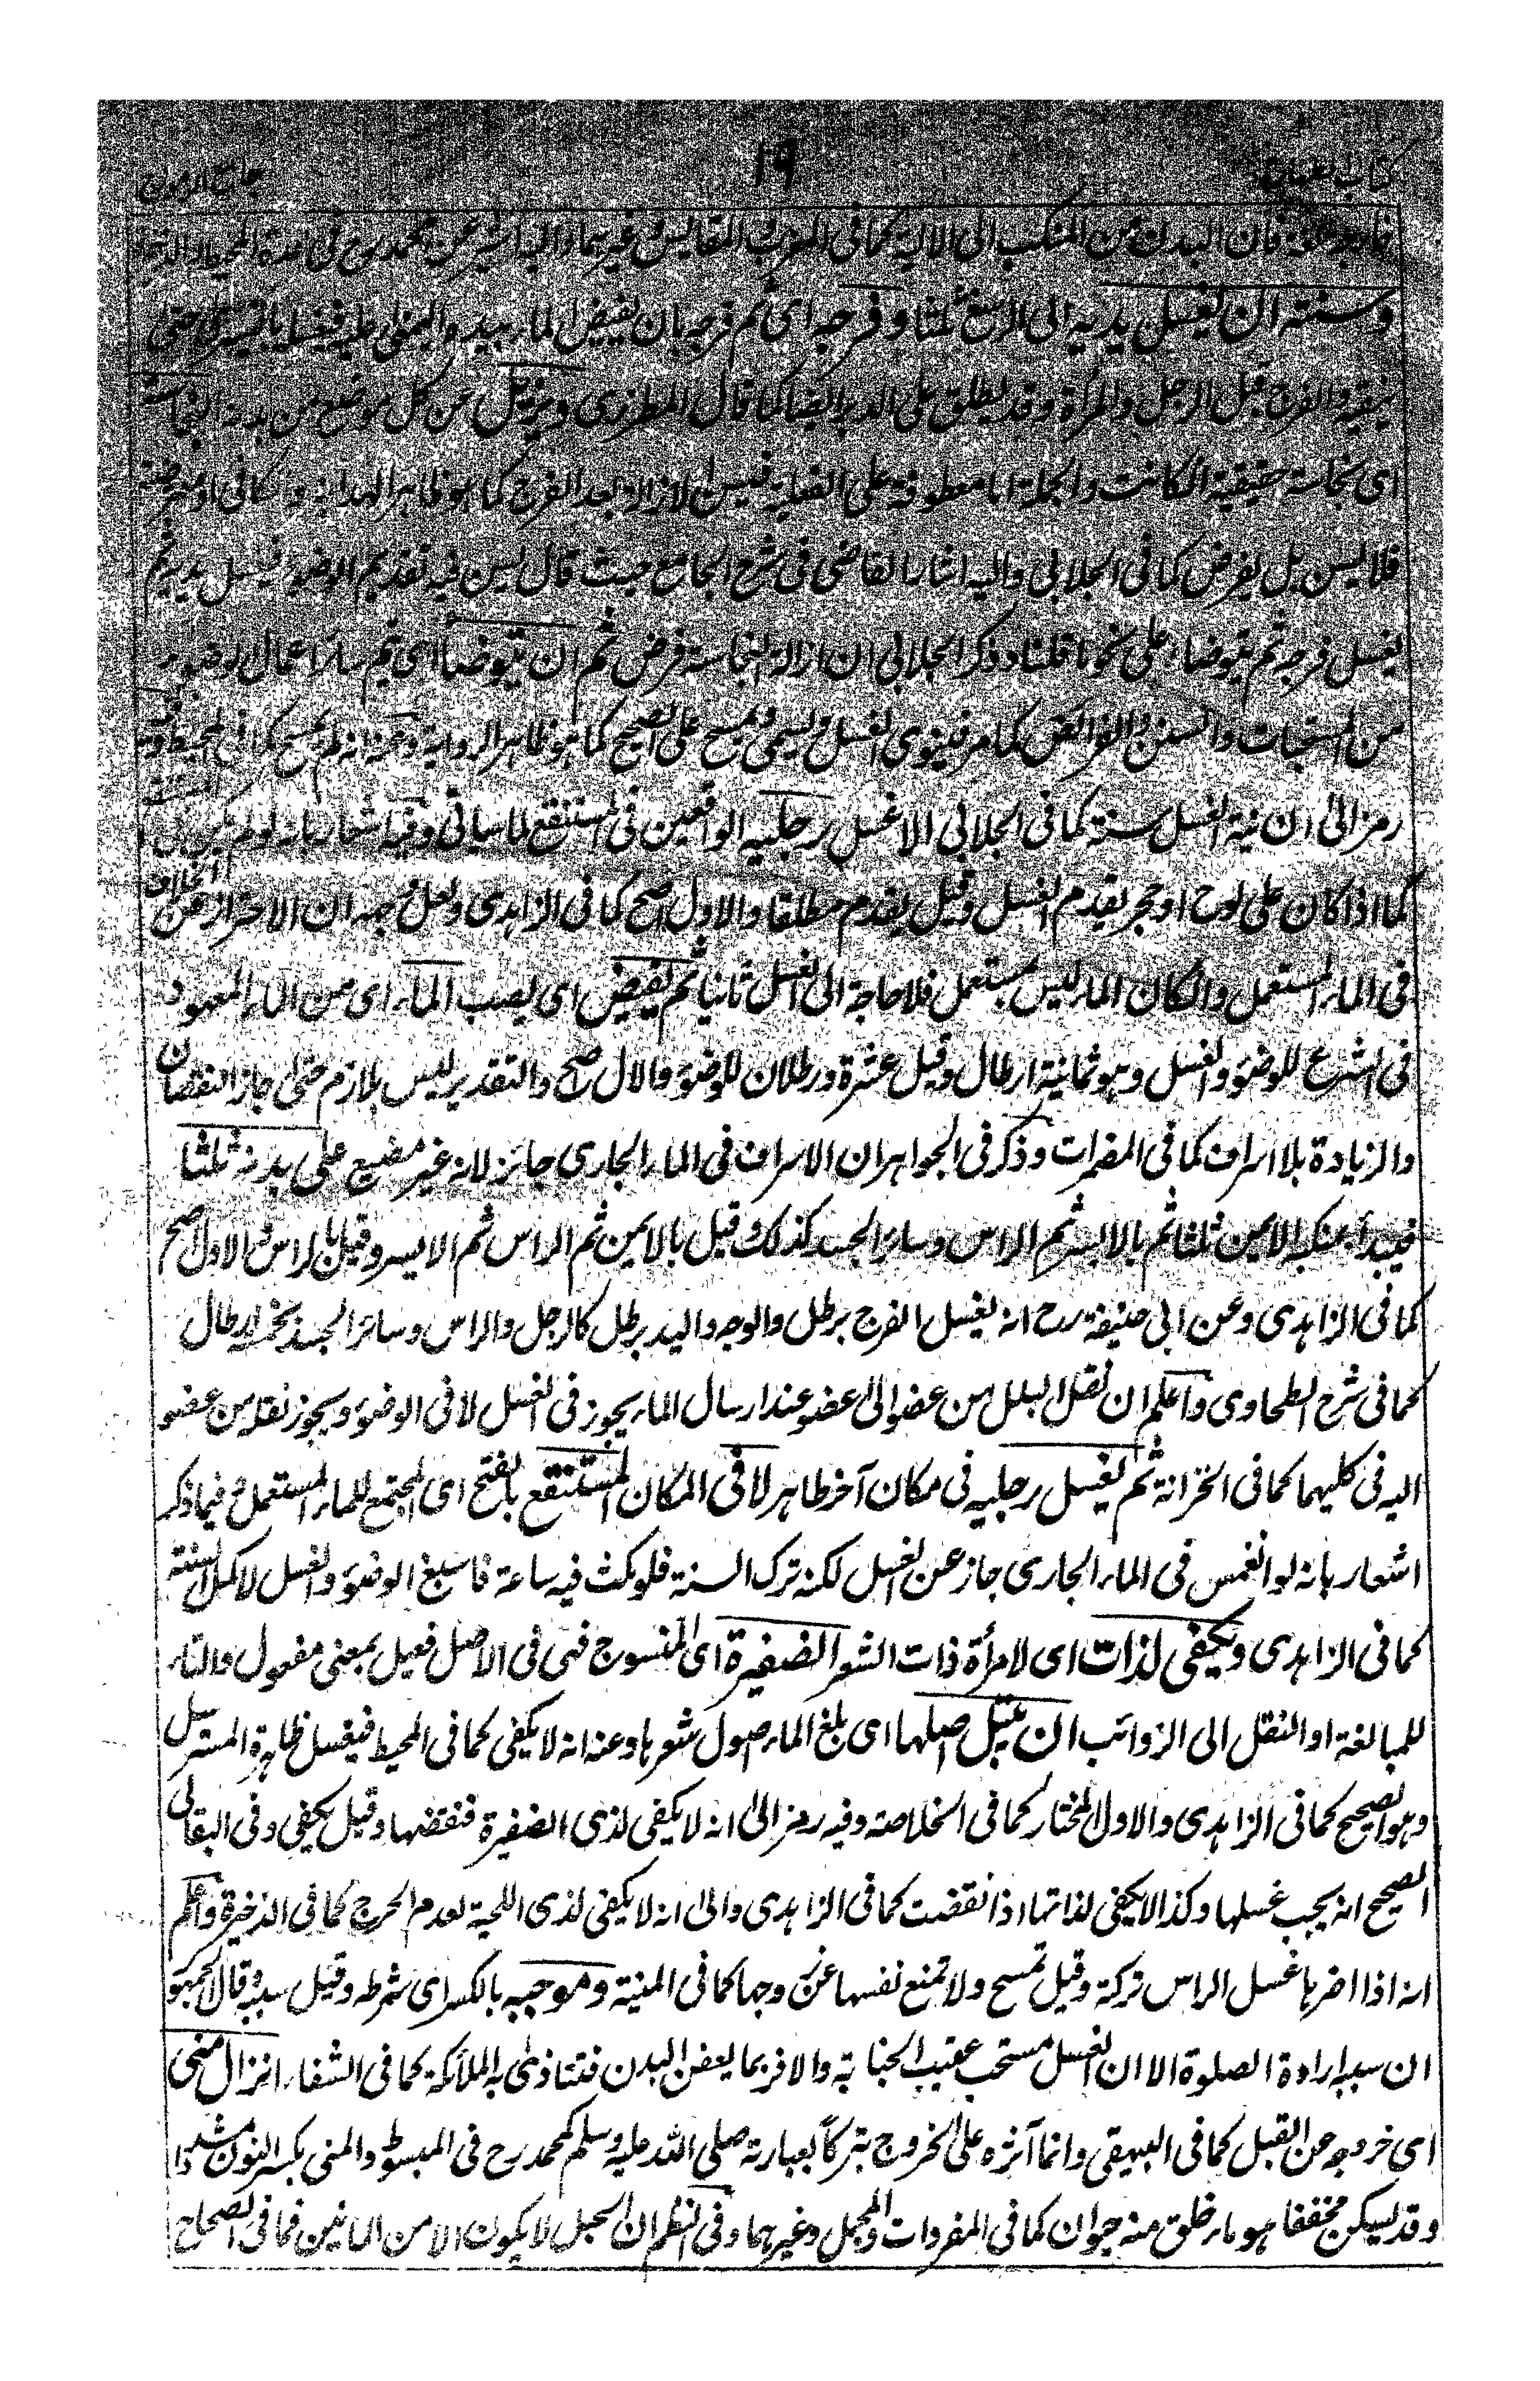 كتاب الطهارة ١٩ جامع الرموز
فان البدن من المنكب الى الالية كما فى المغرب والمقاييس وغيرهما واليه اشير عن محمد رح
وسنته ان يغسل يديه الى الرسغ ثلثا وفرجه اى ثم فرجه بان يفيض الماء بيده اليمنى عليه فيغسله باليسرى حتى
ينقيه والفرج قبل الرجل والمرأة وقد يطلق على الدبر ايضا كما قال المطرزى ويزيل عن كل موضع من بدنه النجاسة
اى نجاسة حقيقية ان كانت والجملة اما معطوفة على الفعلية فيسن الازالة بعد الفرج كما هو ظاهر الهداية والكافى او معترضة
فلا يسن بل يفرض كما فى الجلابى واليه اشار القاضى فى شرح الجامع حيث قال يسن فيه تقديم الوضوء فيغسل يديه ثم
يغسل فرجه ثم يتوضاء على نحو ما قلنا وذكر الجلابى ان ازالة النجاسة فرض ثم ان يتوضا اى ثم سائر اعمال الوضوء
من المستحبات والسنن والفرائض كما مر فينوى الغسل ويسمى ويمسح على الصحيح كما هو ظاهر الرواية وعنه انه لم يمسح كما فى المحيط وفيه
رمز الى ان نية الغسل سنة كما فى الجلابى الا غسل رجليه الواقعين فى المستنقع لما سياتى وفيه اشعار بانه لو لم يكن
كما اذا كان على لوح او حجر يقدم الغسل وقيل يقدم مطلقا والاول اصح كما فى الزاهدى ولعل وجهه ان الاحتراز عن الخلاف
فى الماء المستعمل وان كان الماء ليس بمستعمل فلا حاجة الى الغسل ثانيا ثم يفيض اى يصب الماء اى من الماء المعهود
فى الشرع للوضوء والغسل وهو ثمانية ارطال وقيل عشرة ورطلان للوضوء والاول اصح والتقدير ليس بلازم حتى جاز النقصان
والزيادة بلا اسراف كما فى المضمرات وذكر فى الجواهر ان الاسراف فى الماء الجارى جائز لانه غير مضيع على بدنه ثلثا
فيبدأ بمنكبه الايمن ثلثا ثم بالايسر ثم الراس وسائر الجسد كذلك وقيل بالايمن ثم الراس ثم الايسر وقيل بالراس والاول اصح
كما فى الزاهدى وعن ابى حنيفة رح انه يغسل الفرج برطل والوجه واليد برطل كالرجل والراس وسائر الجسد بخمسة ارطال
كما فى شرح الطحاوى واعلم ان نقل البلل من عضو الى عضو عند ارسال الماء يجوز فى الغسل لا فى الوضوء ويجوز نقله من عضو
اليه فى كليهما كما فى الخزانة ثم يغسل رجليه فى مكان آخر طاهر لا فى المكان المستنقع بالفتح اى المجتمع للماء المستعمل وفيما ذكر
اشعار بانه لو انغمس فى الماء الجارى جاز عن الغسل لكنه ترك السنة فلو مكث فيه ساعة فاسبغ الوضوء والغسل لاكمل السنة
كما فى الزاهدى ويكفى لذات اى لامرأة ذات الشعر الضفيرة اى المنسوج فهى فى الاصل فعيل بمعنى مفعول والتاء
للمبالغة او النقل الى الزوائب ان يبتل اصلها اى بلغ الماء اصول شعرها وعنه انه لا يكفى كما فى المحيط فيغسل ظاهرة المسترسل
وهو الصحيح كما فى الزاهدى والاول المختار كما فى الخلاصة وفيه رمز الى انه لا يكفى لذى الضفيرة فنقضها وقيل يكفى وفى البقالى
الصحيح انه يجب غسلها وكذا لا يكفى لذاتها اذا نقضت كما فى الزاهدى والى انه لا يكفى لذى اللحية لعدم الحرج كما فى الذخيرة واعلم
انه اذا اضرها غسل الراس تركة وقيل تمسح ولا تمنع نفسها عن زوجها كما فى المنية وموجبه بالكسر اى شرطه وقيل سببه وقال الجمهور
ان سببه ارادة الصلوة الا ان الغسل مستحب عقيب الجنابة والا فربما يعفن البدن فتتاذى به الملائكة كما فى الشفاء انزال منى
اى خروجه عن القبل كما فى البيهقى وانما آثره على الخروج تبركاً بعبارته صلى الله عليه وسلم كمحمد رح فى المبسوط والمنى بكسر النون مشددا
وقد يسكن مخففا هو ماء خلق منه حيوان كما فى المفردات والمجمل وغيرهما وفى النظم ان الحبل لا يكون الا من المائين فما فى الصحاح